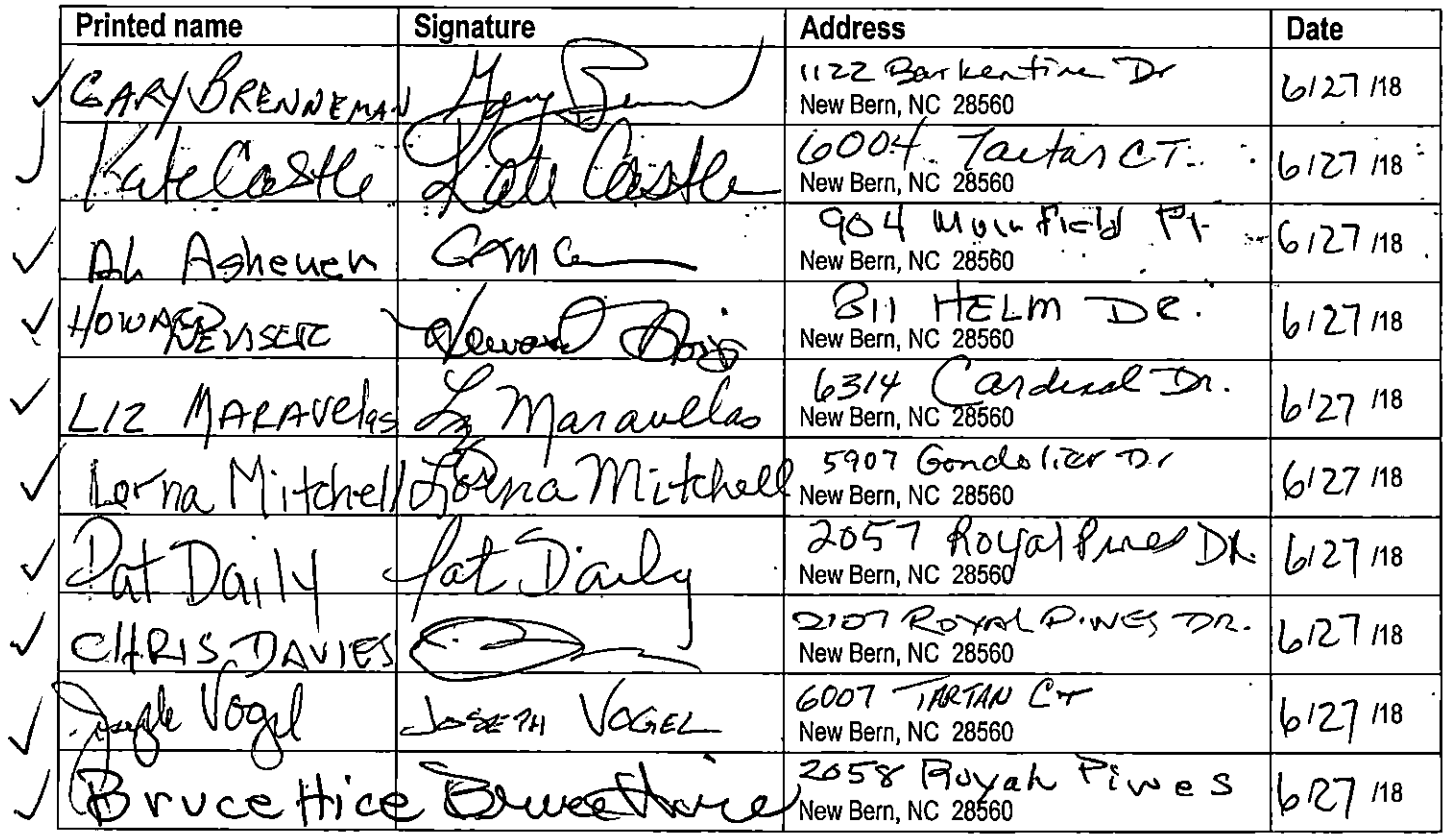 Printed name Signature Address Date
✓ GARY BRENNEMAN Gary 1122 Barkentine Dr
New Bern, NC 28560 6/27/18
✓ Kate Castle Kate Castle 6004 Tartan CT.
New Bern, NC 28560 6/27/18
✓ Asheuer 904 Pt
New Bern, NC 28560 6/27/18
✓ HOWARD Howard 811 HELM DR.
New Bern, NC 28560 6/27/18
✓ LIZ MARAVElas Liz Maravelas 6314 Cardinal Dr.
New Bern, NC 28560 6/27/18
✓ Lorna Mitchell Lorna Mitchell 5907 Gondolier Dr
New Bern, NC 28560 6/27/18
✓ Pat Daily Pat Daily 2057 Royal Pines DR.
New Bern, NC 28560 6/27/18
✓ CHRIS DAVIES 2107 ROYAL PINES DR.
New Bern, NC 28560 6/27/18
✓ Joseph Vogel JOSEPH VOGEL 6007 TARTAN CT
New Bern, NC 28560 6/27/18
✓ Bruce Hice Bruce Hice 2058 Royal Pines
New Bern, NC 28560 6/27/18